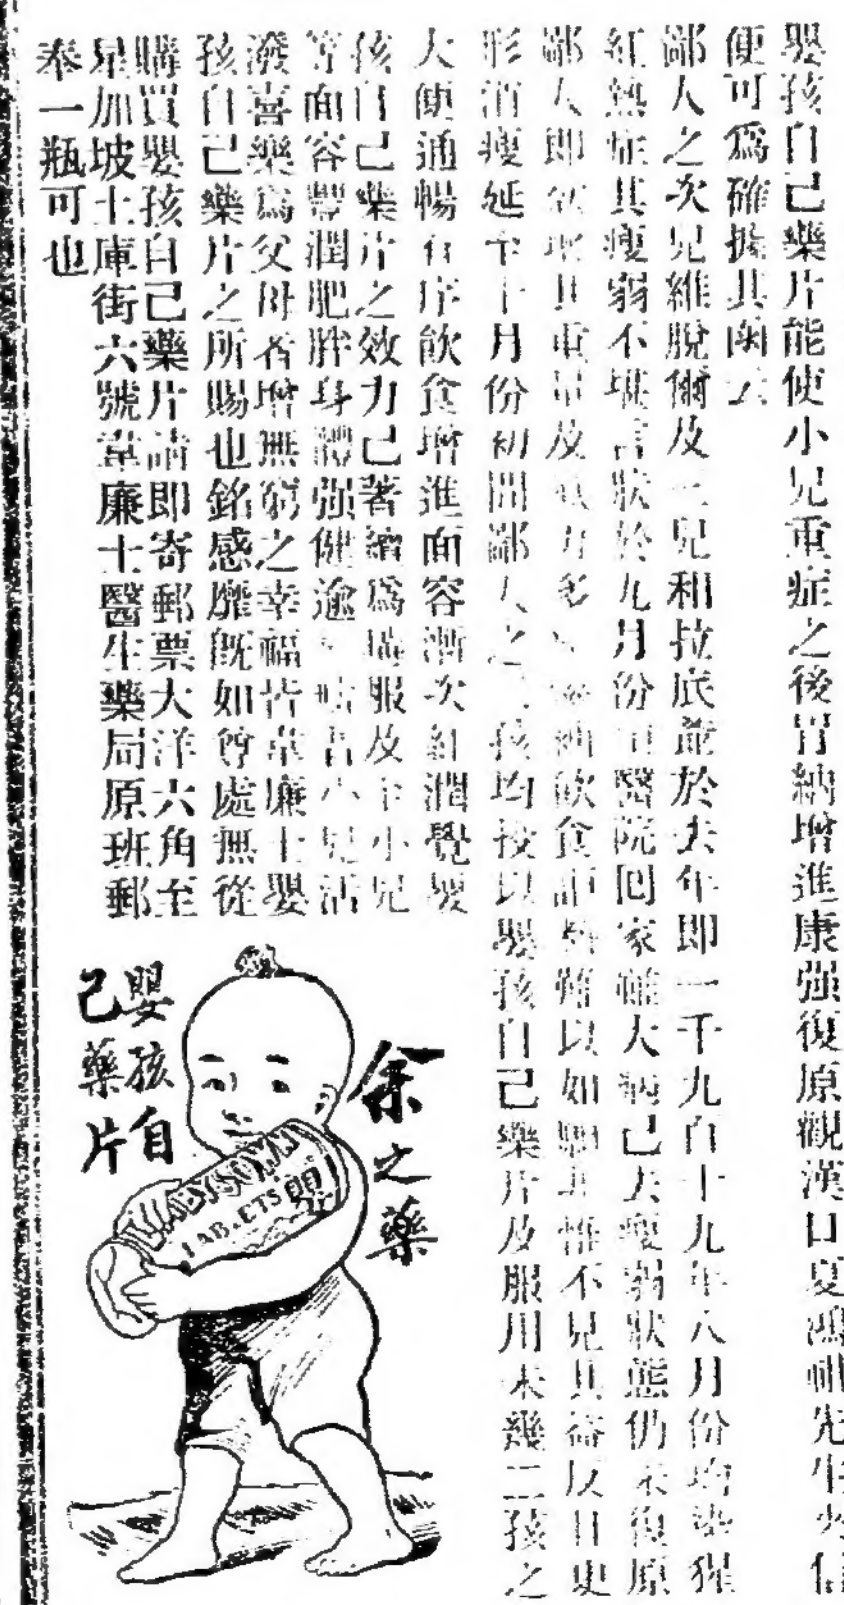 嬰孩自己藥片能使小兒重症之後胃納增進康强復原觀漢口夏鴻先生來信
便可爲確據其函云
鄙人之次兒維脫爾及三兒和拉底並於去年即一千九百十九年八月份均染猩
紅熱症其瘦弱不堪言狀於九月份由醫院回家雖大病已去瘦弱狀態仍未復原
鄙人即欲增其重量及氣力多飲食詎料難以如願非惟不見其益反日更
形消瘦延至十月份初間鄙人之二孩均投以嬰孩自己藥片及服用未幾二孩之
大便通暢有序飲食增進面容漸次紅潤覺嬰
孩自己藥片之效力已著續爲購服及至小兒
等面容豐潤肥胖身體强健逾小兒活
潑喜樂爲父母者增無窮之幸福皆韋廉士嬰
孩自己藥片之所賜也銘感靡既如尊處無從
購買嬰孩自己藥片請即寄郵票大洋六角至
星加坡土庫街六號韋廉士醫生藥局原班郵
奉一瓶可也
余之藥
嬰孩自
己藥片
BABY'S OWN
TABLETS